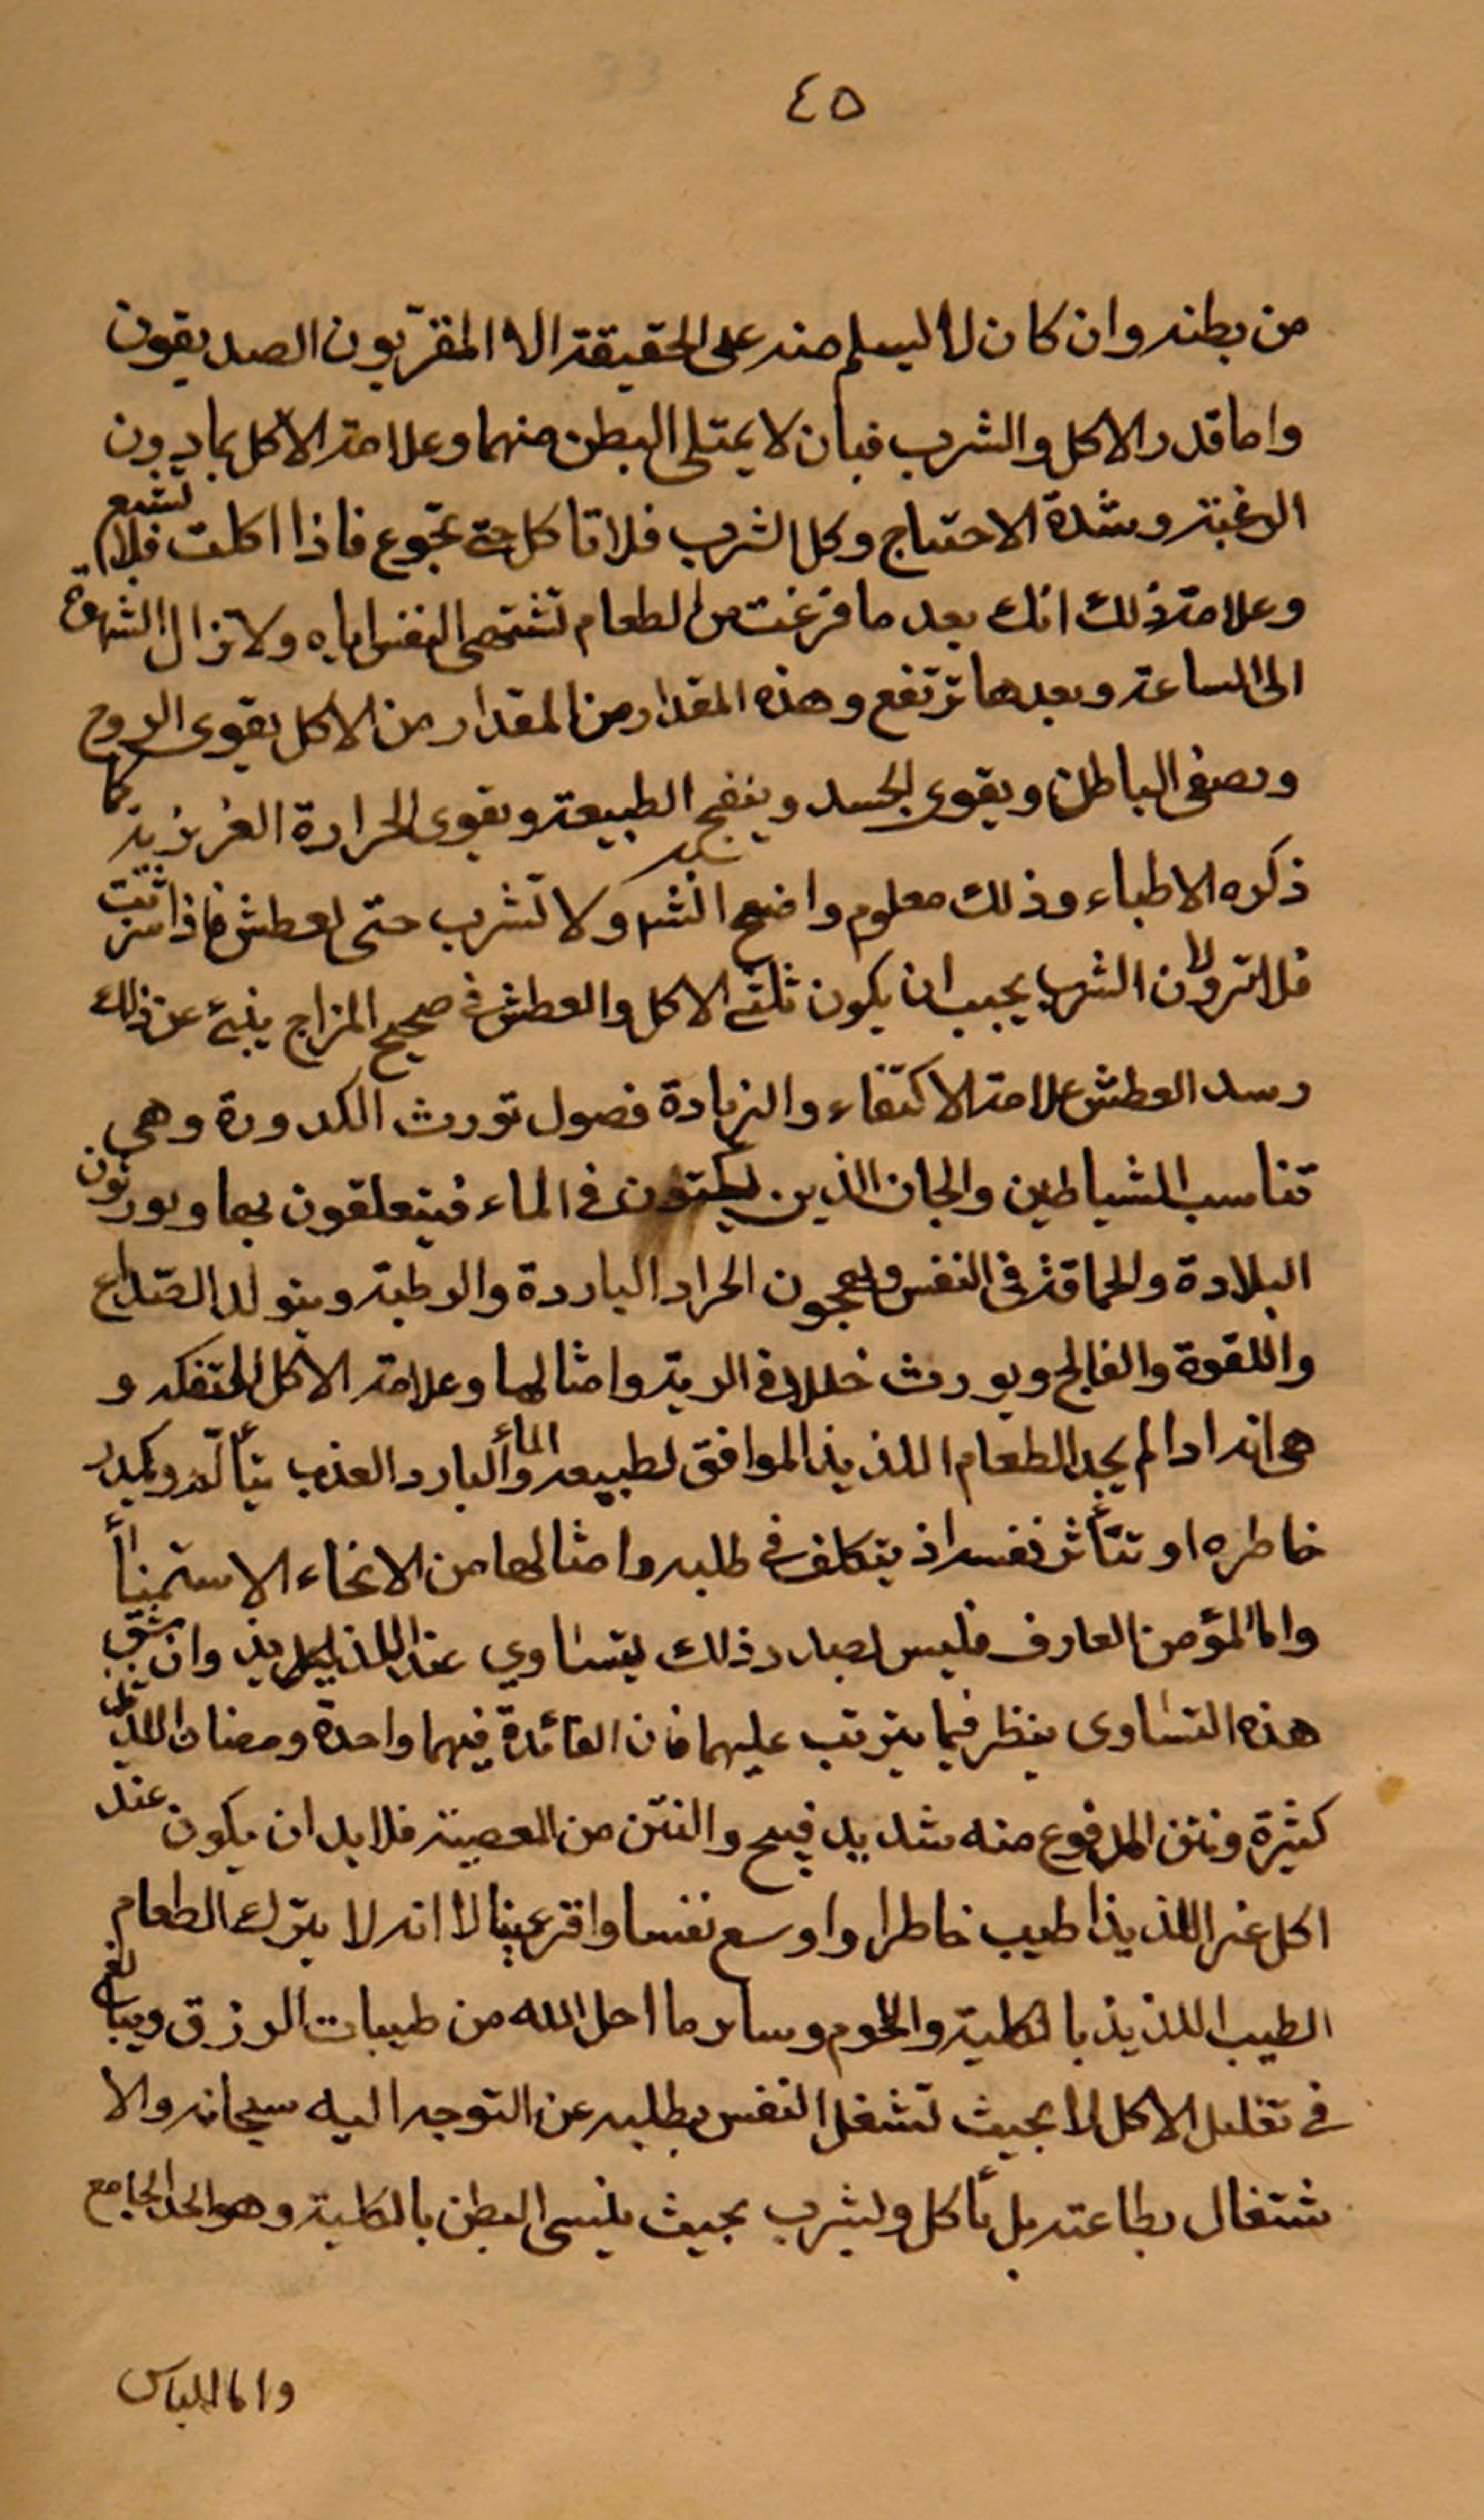 ٤٥
من بطنه وان كان لا ليسلم منه على الحقيقة الا المقربون الصديقون
واما قدر الاكل والشرب فبان لا يمتلى البطن منهما وعلامة الاكل بما دون
الرغبة وشدة الاحتياج وكل الشرب فلا تاكل حتى تجوع فاذا اكلت فلا تشبع
وعلامة ذلك انك بعد ما فرغت من الطعام تشتهى النفس اياه ولا تزال الشهوة
الى الساعة وبعدها ترتفع وهذه المقدار من المقدار من الاكل يقوى الروح
ويصفى الباطن ويقوى الجسد وينضج الطبيعة ويقوى الحرارة الغريزية كما
ذكره الاطباء وذلك معلوم واضح ولا تشرب حتى تعطش فاذا شربت
فلا ترو لان الشرب يجب ان يكون ثلثى الاكل والعطش فى صحيح المزاج ينبئ عن ذلك
وسد العطش علامة الاكتفاء والزيادة فضول تورث الكدورة وهى
تناسب الشياطين والجان الذين فى الماء فيتعلقون بها ويورثون
البلادة والحماقة فى النفس ويهيجون الحرار الباردة والرطبة ويتولد الصداع
واللقوة والفالج ويورث خللا فى الرية وامثالها وعلامة الاكل للتفكه و
هى انه اذا لم يجد الطعام اللذيذ الموافق لطبيعه والمأ البارد العذب يتألم ويكدر
خاطره او تتأثر نفسه اذ يتكلف فى طلبه وامثالها من الانحاء الاستمنأ
واما المؤمن العارف فليس بصدد ذلك يتساوي عند اللذ وان شق
هذه التساوى ينظر فيما يترتب عليهما فان الفائدة فيهما واحدة ومضار اللذيذ
كثيرة ونتن المدفوع منه شديد قبيح والنتن من المعصية فلا بد ان يكون عند
اكل غير اللذيذ اطيب خاطرا واوسع نفسا واقر عينا لا انه لا يترك الطعام
الطيب اللذيذ بالكلية واللحوم وساير ما احل الله من طيبات الرزق ويبالغ
فى تقليل الاكل لا بحيث تشغل النفس بطلبه عن التوجه اليه سبحانه والا
شتغال بطاعته بل يأكل ويشرب بحيث ينسى البطن بالكلية وهو الحد الجامع
واما اللباس